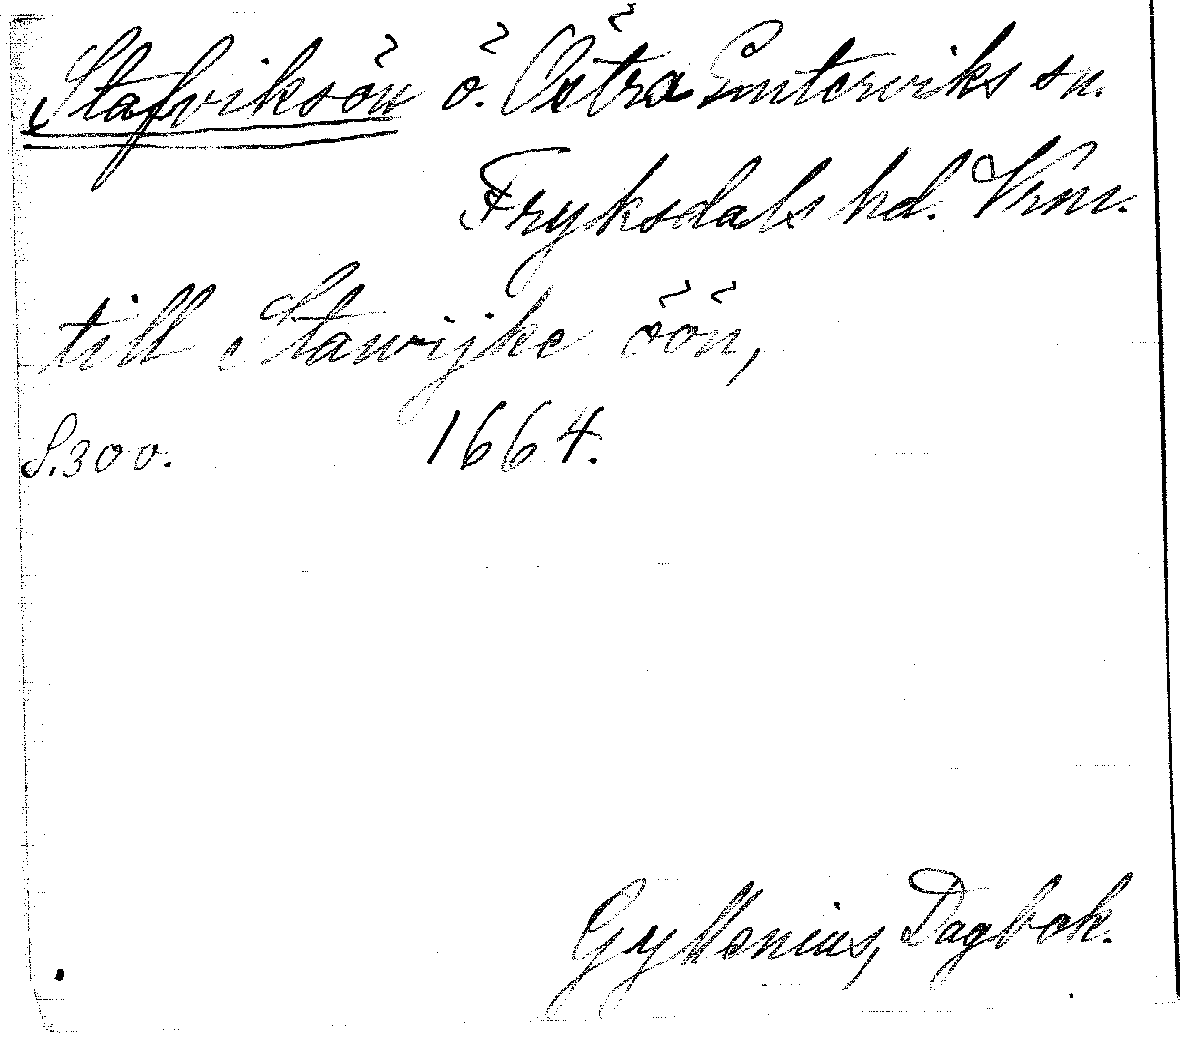 Stafviksön ö. Östra Emterviks sn.
Fryksdals hd. Vrm.
till Stawijke öön,
S. 300. 1664.
Gyllenius, Dagbok.